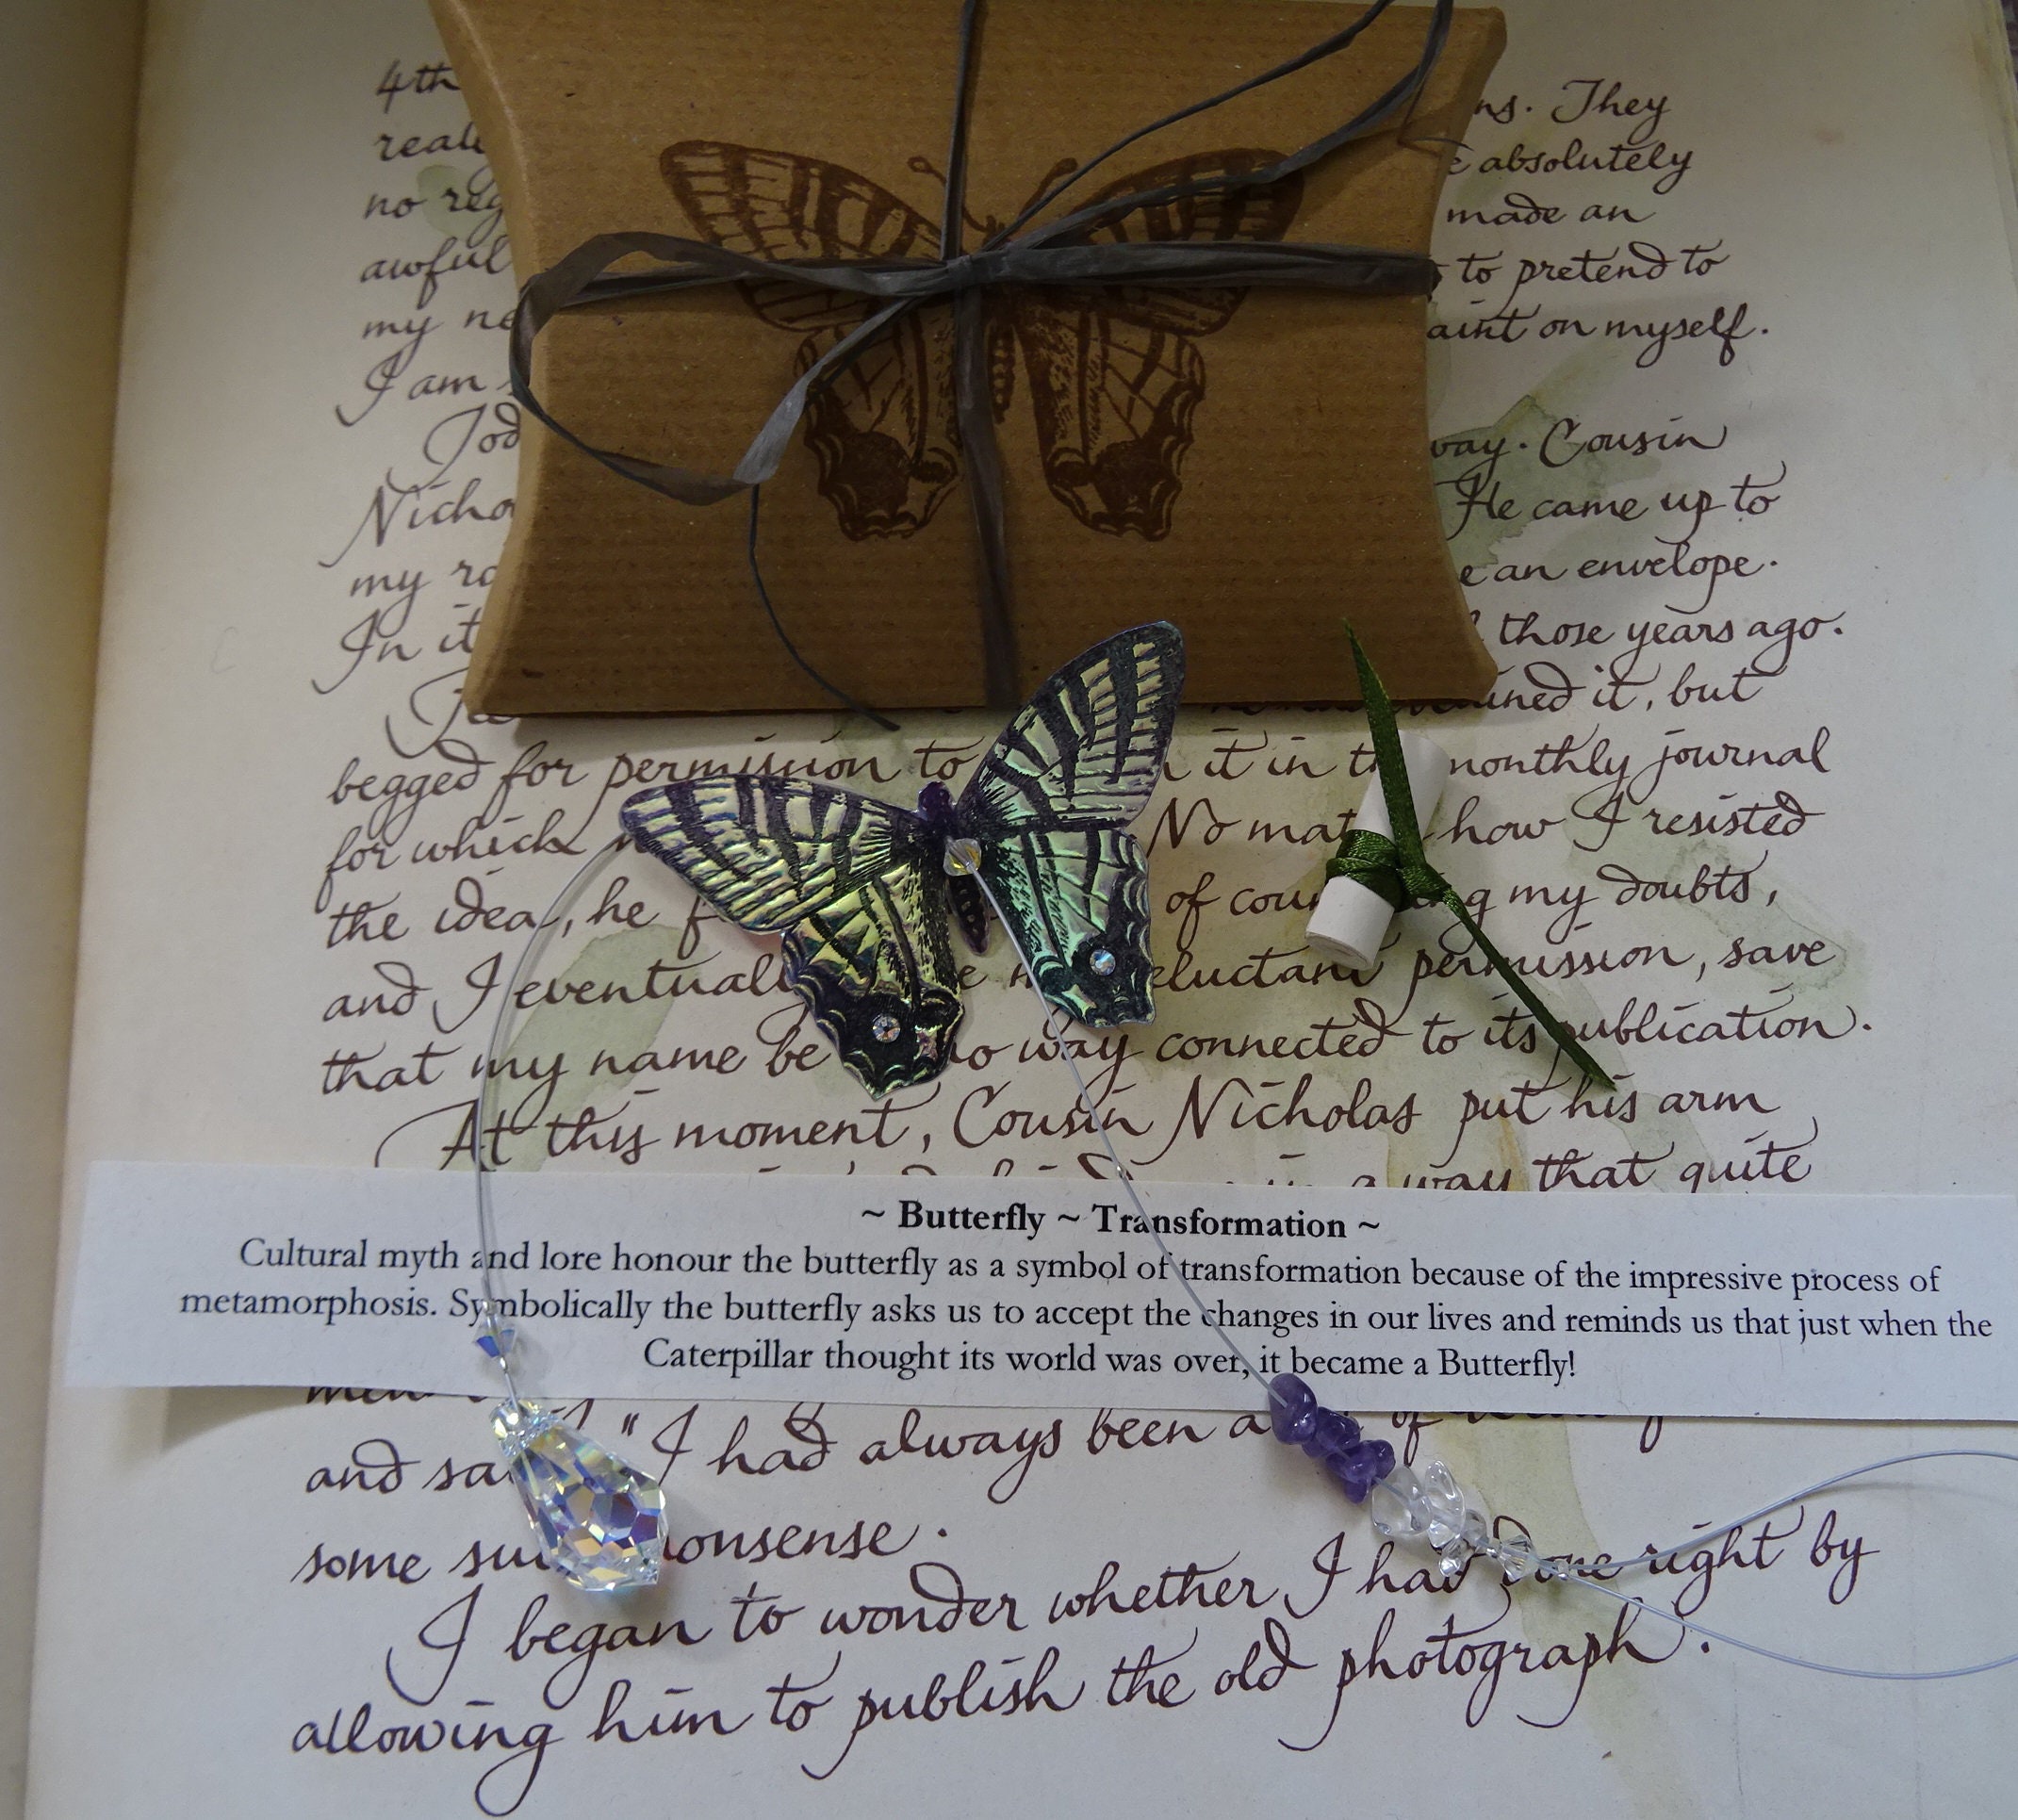 4th ns. They
absolutely
no made an
awful to pretend to
my on myself.
I am
way. Cousin
He came up to
my an envelope.
In it those years ago.
it, but
begged for permission to it in monthly journal
for which No how I resisted
the idea, he of my doubts,
and I permission, save
that my name be way connected to its publication.
At this moment, Cousin Nicholas put his arm
a way that quite
~ Butterfly ~ Transformation ~
Cultural myth and lore honour the butterfly as a symbol of transformation because of the impressive process of
metamorphosis. Symbolically the butterfly asks us to accept the changes in our lives and reminds us that just when the
Caterpillar thought its world was over, it became a Butterfly!
and "I had always been a of
some nonsense.
I began to wonder whether I had done right by
allowing him to publish the old photograph.